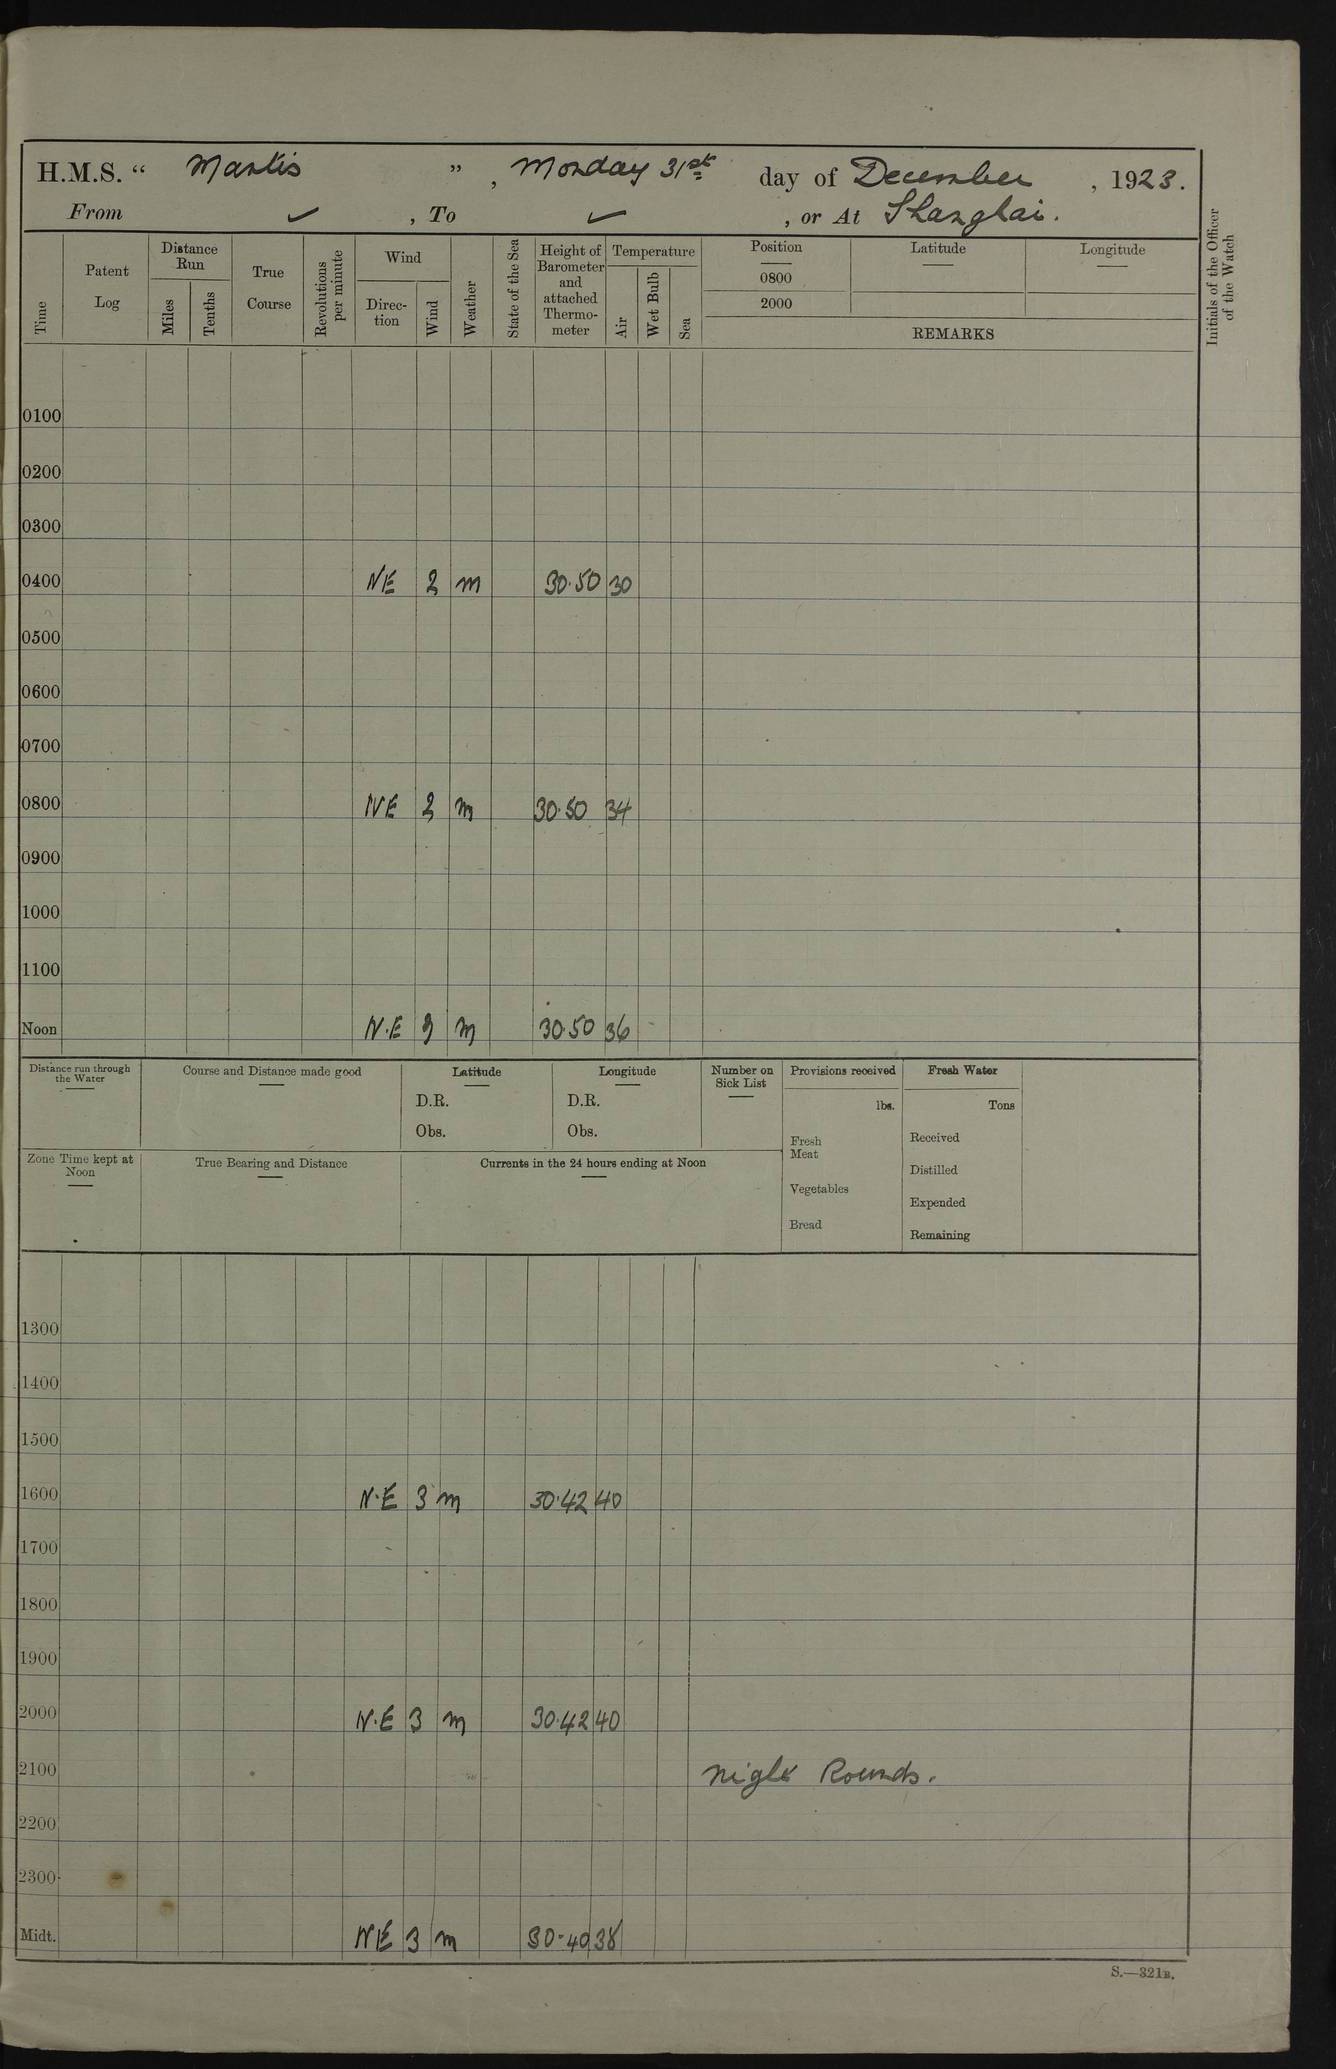 H.M.S. “ Mantis ”, Monday 31st day of December, 1923.
From ✓, To ✓, or At Shanghai.
Time
Patent Log
Distance Run
Miles
Tenths
True Course
Revolutions per minute
Wind
Direc-tion
Wind
Weather
State of the Sea
Height of Barometer and attached Thermo-meter
Temperature
Air
Wet Bulb
Sea
Position Latitude Longitude
0800
2000
REMARKS
Initials of the Officer of the Watch
0100
0200
0300
0400 NE 2 m 30.50 30
0500
0600
0700
0800 NE 2 m 30.50 34
0900
1000
1100
Noon N.E m 30.50 36
Distance run through the Water
Course and Distance made good
Latitude
D.R.
Obs.
Longitude
D.R.
Obs.
Number on Sick List
Provisions received
lbs.
Fresh Meat
Vegetables
Bread
Fresh Water
Tons
Received
Distilled
Expended
Remaining
Zone Time kept at Noon
True Bearing and Distance
Currents in the 24 hours ending at Noon
1300
1400
1500
1600 N.E 3 m 30.42 40
1700
1800
1900
2000 N.E 3 m 30.42 40
2100 Night Rounds.
2200
2300
Midt. NE 3 m 30-40 38
S.—321B.